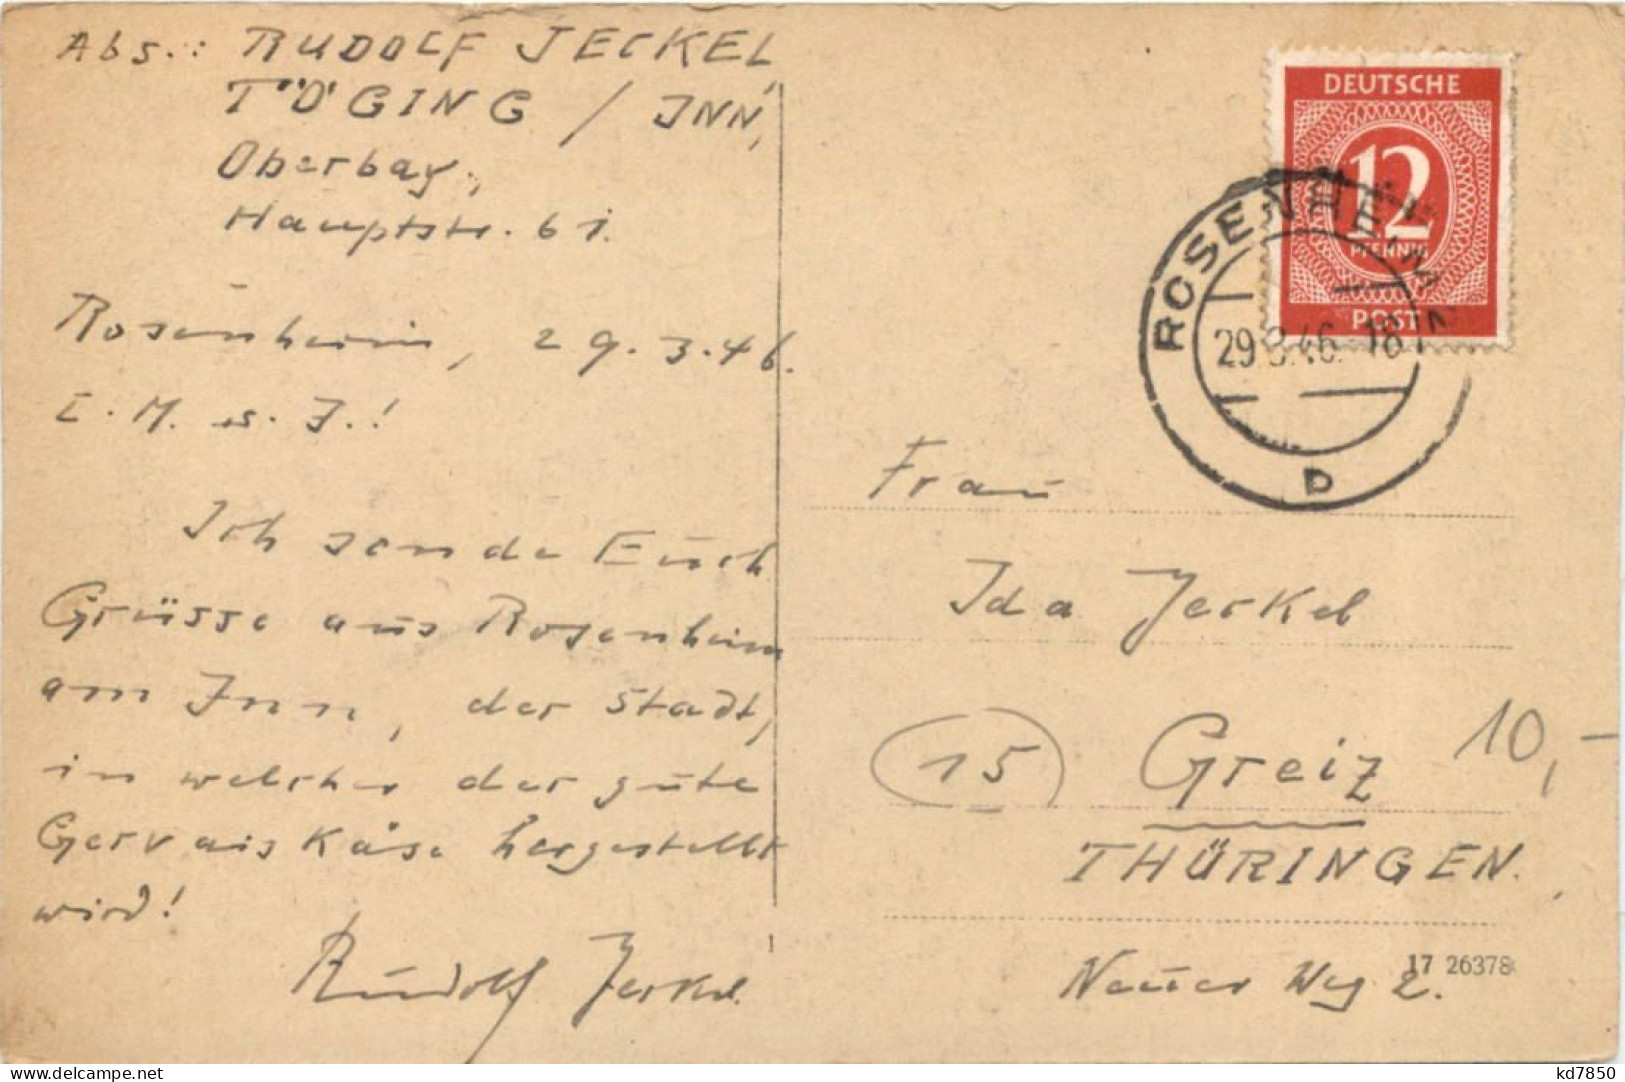 Abs.: RUDOLF JECKEL
TÖGING / INN,
Oberbay.,
Hauptstr. 61.
Rosenheim, 29.3.46.
L. M. u. J.!
Ich sende Euch
Grüsse aus Rosenheim
am Inn, der Stadt,
in welcher der gute
Gervais Käse hergestellt
wird!
Rudolf Jeckel
DEUTSCHE
12
PFENNIG
POST
ROSENHEIM
29.3.46. 18
D
Frau
Ida Jeckel
15 Greiz
10,-
THÜRINGEN.
Neuer Weg 2.
17 26378
kd7850